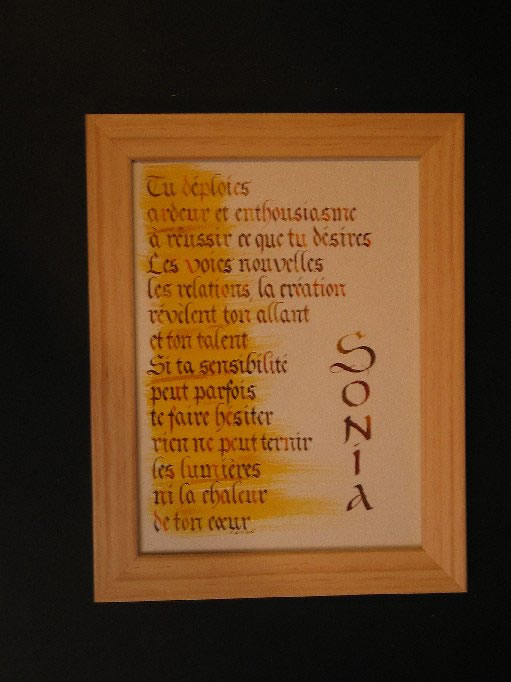 Tu déploies
ardeur et enthousiasme
à réussir ce que tu désires
Les voies nouvelles
les relations, la création
révèlent ton allant
et ton talent
Si ta sensibilité
peut parfois
te faire hésiter
rien ne peut ternir
les lumières
ni la chaleur
de ton cœur
SONiA